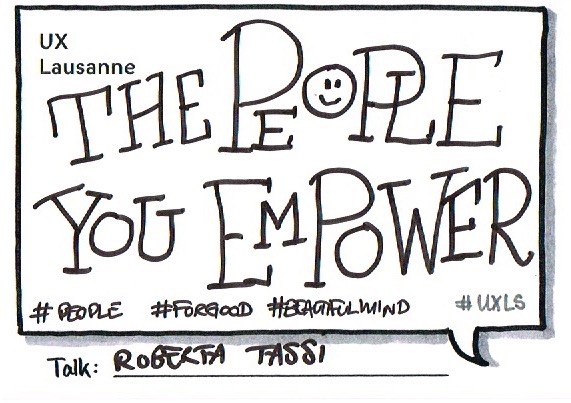 UX
Lausanne
THE PEOPLE
YOU EMPOWER
#PEOPLE #FORGOOD #BEAUTIFULMIND #UXLS
Talk: ROBERTA TASSI